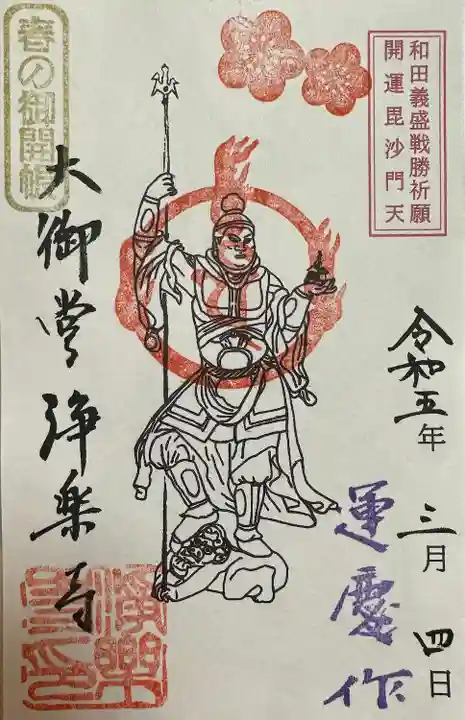 和田義盛戦勝祈願
開運毘沙門天
令和五年
三月
四日
運慶作
春の御開帳
大御堂浄楽寺